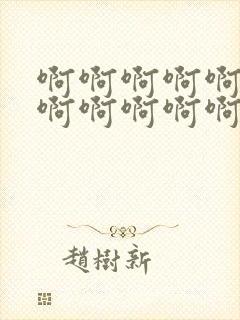 啊啊啊啊啊
啊啊啊啊啊
趙樹新